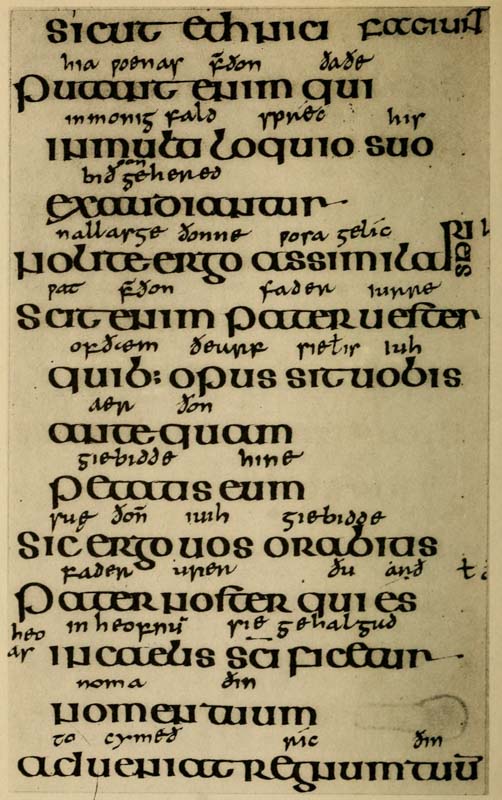 sicut ethnici faciunt
hia poenas fðon ðaðe
Putant enim qui
in monig fald spréc his
in multa loquio suo
bið gehered
exaudiantur
nallas ge ðonne wosa gelic
nolite ergo assimilari eis
wat fðon fader iurre
Scit enim pater uester
ðeurf sie ł is iuh
quib; opus sit uobis
aer ðon
ante quam
giebidde hine
petatis eum
sue ðon̄ iuih giebidde
Sic ergo uos orabitis
fader uren ðu arð
Pater noster qui es
in heofnū sie gehalgud
in caelis sc̄ificetur
noma ðin
nomen tuum
to cymeð ric ðin
adueniat regnum tuū